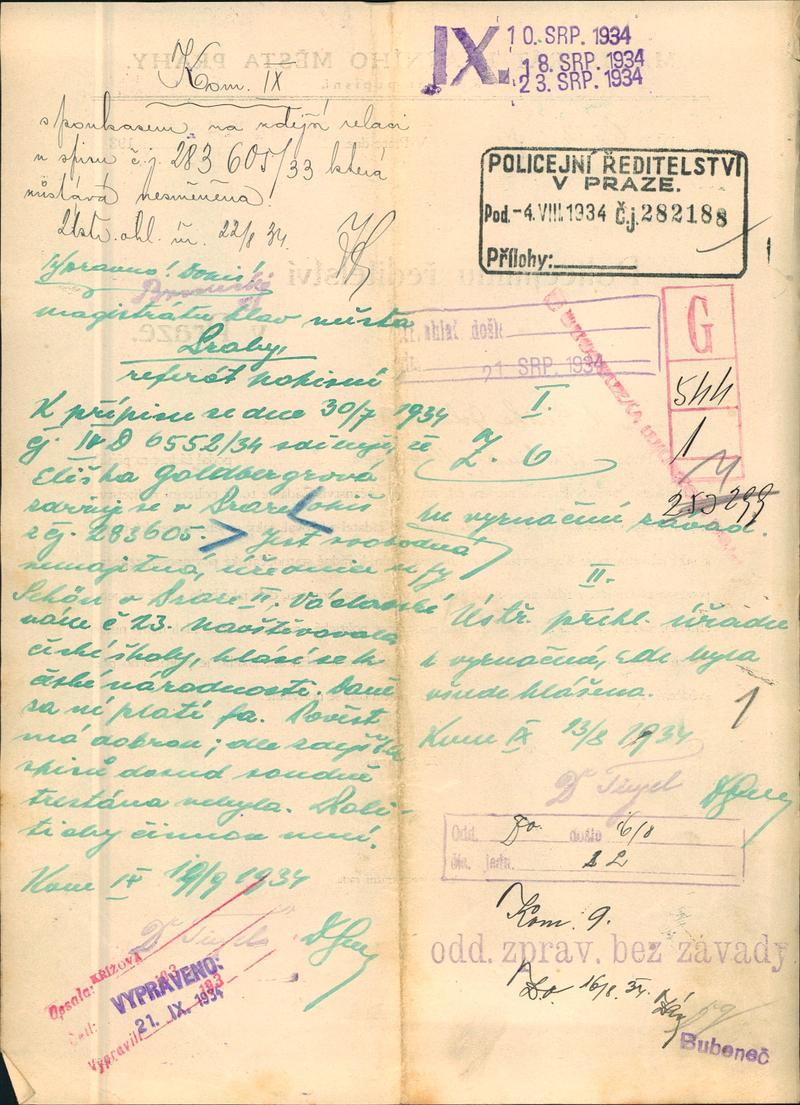 Kom. IX
s poukazem na zdejší relaci
u spisu č.j. 283 605/33 která
zůstává nezměněna.
Ústř. ohl. úř. 22/8 34.
IX.
10. SRP. 1934
18. SRP. 1934
23. SRP. 1934
POLICEJNÍ ŘEDITELSTVÍ
V PRAZE.
Pod. -4. VIII. 1934 č.j. 282188
Přílohy:
1
Vypravno!
magistrátu hlav města
Prahy,
referát popisní
K přípisu ze dne 30/7 1934
čj. IV D 6552/34 sděluji, že
Eliška Goldbergrová
zdržuje se v Praze
z čj. 283605. Jest svobodná
nemajetná, úřednice u fy
Schön v Praze II. Václavské
nám č 23. Navštěvovala
české školy, hlásí se k
české národnosti. Daně
za ni platí fa. Pověst
má dobrou; dle zdejších
spisů dosud soudně
trestána nebyla. Politicky
činnou není.
Kom IX 19/9 1934
Dr Tigel
Opsala: KŘÍŽOVÁ
Četl:
Vypravil:
193
VYPRAVENO:
21. IX. 1934
došlo
21 SRP. 1934
G
544
1
253299
I.
Z. 6
ku vyznačení závad.
II.
Ústř. přihl. úřadu
k vyznačení, kde byla
všude hlášena.
1
Kom IX 13/8 1934
Dr Tigel
Odd. Do došlo 16/8
čís. jedn.
Kom. 9.
odd. zpráv. bez závady
Do 16/8. 34.
Bubeneč